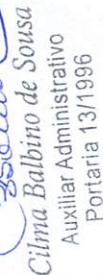 Cilma Balbino de Sousa
Auxiliar Administrativo
Portaria 13/1996